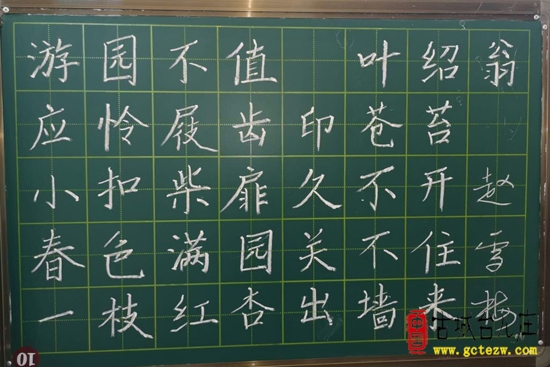 游园不值 叶绍翁
应怜屐齿印苍苔
小扣柴扉久不开
春色满园关不住
一枝红杏出墙来
赵雪梅
10
www.gctezw.com